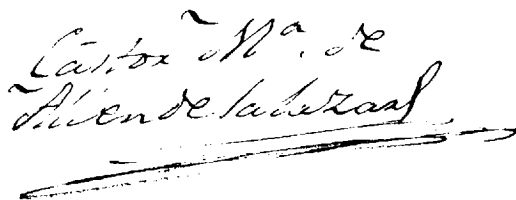 Castor Mª. de
Allendesalazar